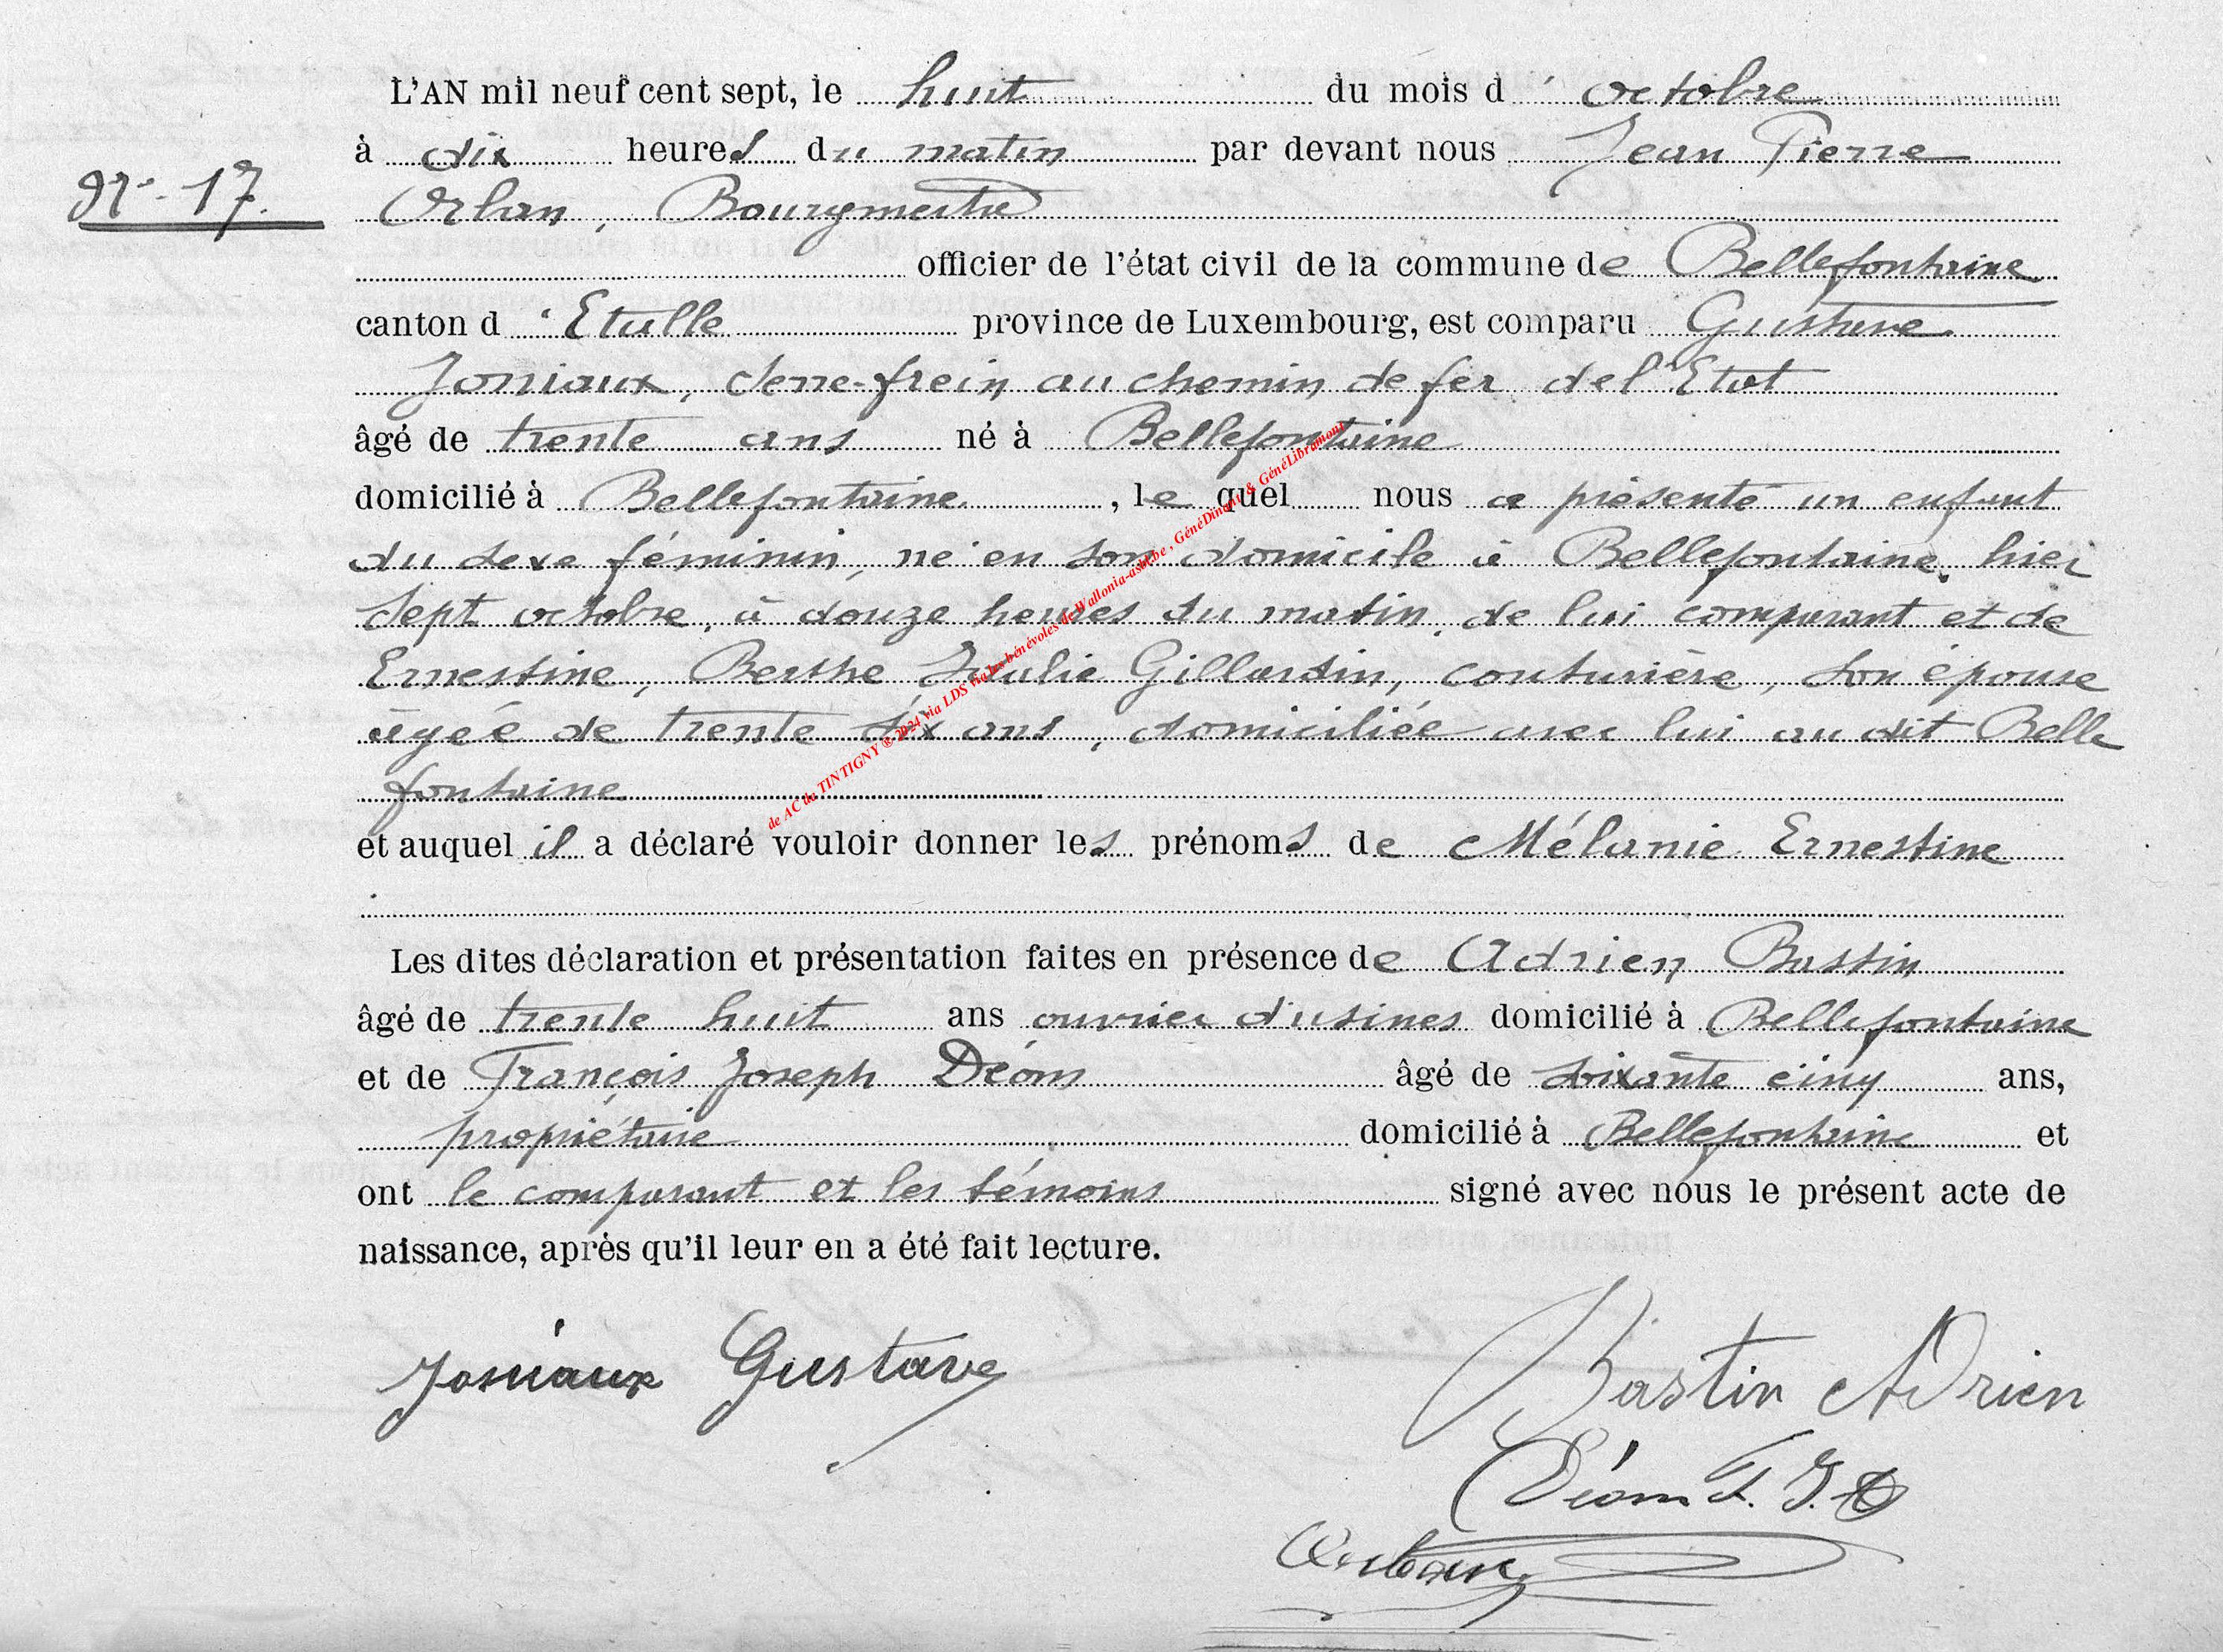 L'AN mil neuf cent sept, le huit du mois d'octobre
à dix heures du matin par devant nous Jean Pierre
N° 17.
Orban, Bourgmestre
officier de l'état civil de la commune de Bellefontaine
canton d'Etalle province de Luxembourg, est comparu Gustave
Josniaux, serre-frein au chemin de fer de l'Etat
âgé de trente ans né à Bellefontaine
domicilié à Bellefontaine, le quel nous a présenté un enfant
du sexe féminin, né en son domicile à Bellefontaine, hier
sept octobre, à douze heures du matin, de lui comparant et de
Ernestine, Berthe, Julie Gillardin, couturière, son épouse
âgée de trente six ans, domiciliée avec lui au dit Belle
fontaine
et auquel il a déclaré vouloir donner les prénoms de Mélanie Ernestine
Les dites déclaration et présentation faites en présence de Adrien Bastin
âgé de trente huit ans ouvrier d'usines domicilié à Bellefontaine
et de François Joseph Déom âgé de soixante cinq ans,
propriétaire domicilié à Bellefontaine et
ont le comparant et les témoins signé avec nous le présent acte de
naissance, après qu'il leur en a été fait lecture.
Josniaux Gustave
Bastin Adrien
Déom F. J.
Orban
de AC du TINTIGNY ® 2024 via LDS via les bénévoles de Wallonia-asbl.be, GénéDinant & GénéLibramont